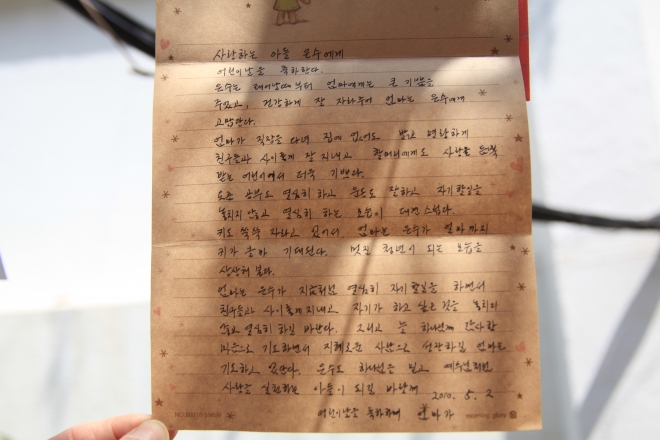 사랑하는 아들 은수에게
어린이날을 축하한다.
은수는 태어날때부터 엄마에게는 큰 기쁨을
주었고, 건강하게 잘 자라주어 엄마는 은수에게
고맙단다.
엄마가 직장을 다녀 집에 없어도 밝고 명랑하게
친구들과 사이좋게 잘 지내고 할머니에게도 사랑을 듬뿍
받는 어린이여서 더욱 기쁘다.
요즘 공부도 열심히 하고 운동도 잘하고 자기할일을
놓치지 않고 열심히 하는 모습이 대견스럽다.
키도 쑥쑥 자라고 있어서 엄마는 은수가 얼마까지
키가 클까 기대된다. 멋진 청년이 되는 모습을
상상해 본다.
엄마는 은수가 지금처럼 열심히 자기할일을 하면서
친구들과 사이좋게 지내고 자기가 하고 싶은 것을 놓치지
않고 열심히 하길 바란다. 그리고 늘 하나님께 감사한
마음으로 기도하면서 지혜로운 사람으로 성장하길 엄마는
기도하고 있단다. 은수도 하나님을 믿고 예수님처럼
사랑을 실천하는 아들이 되길 바라며
2010. 5. 2
어린이날을 축하하며 엄마가
morning glory